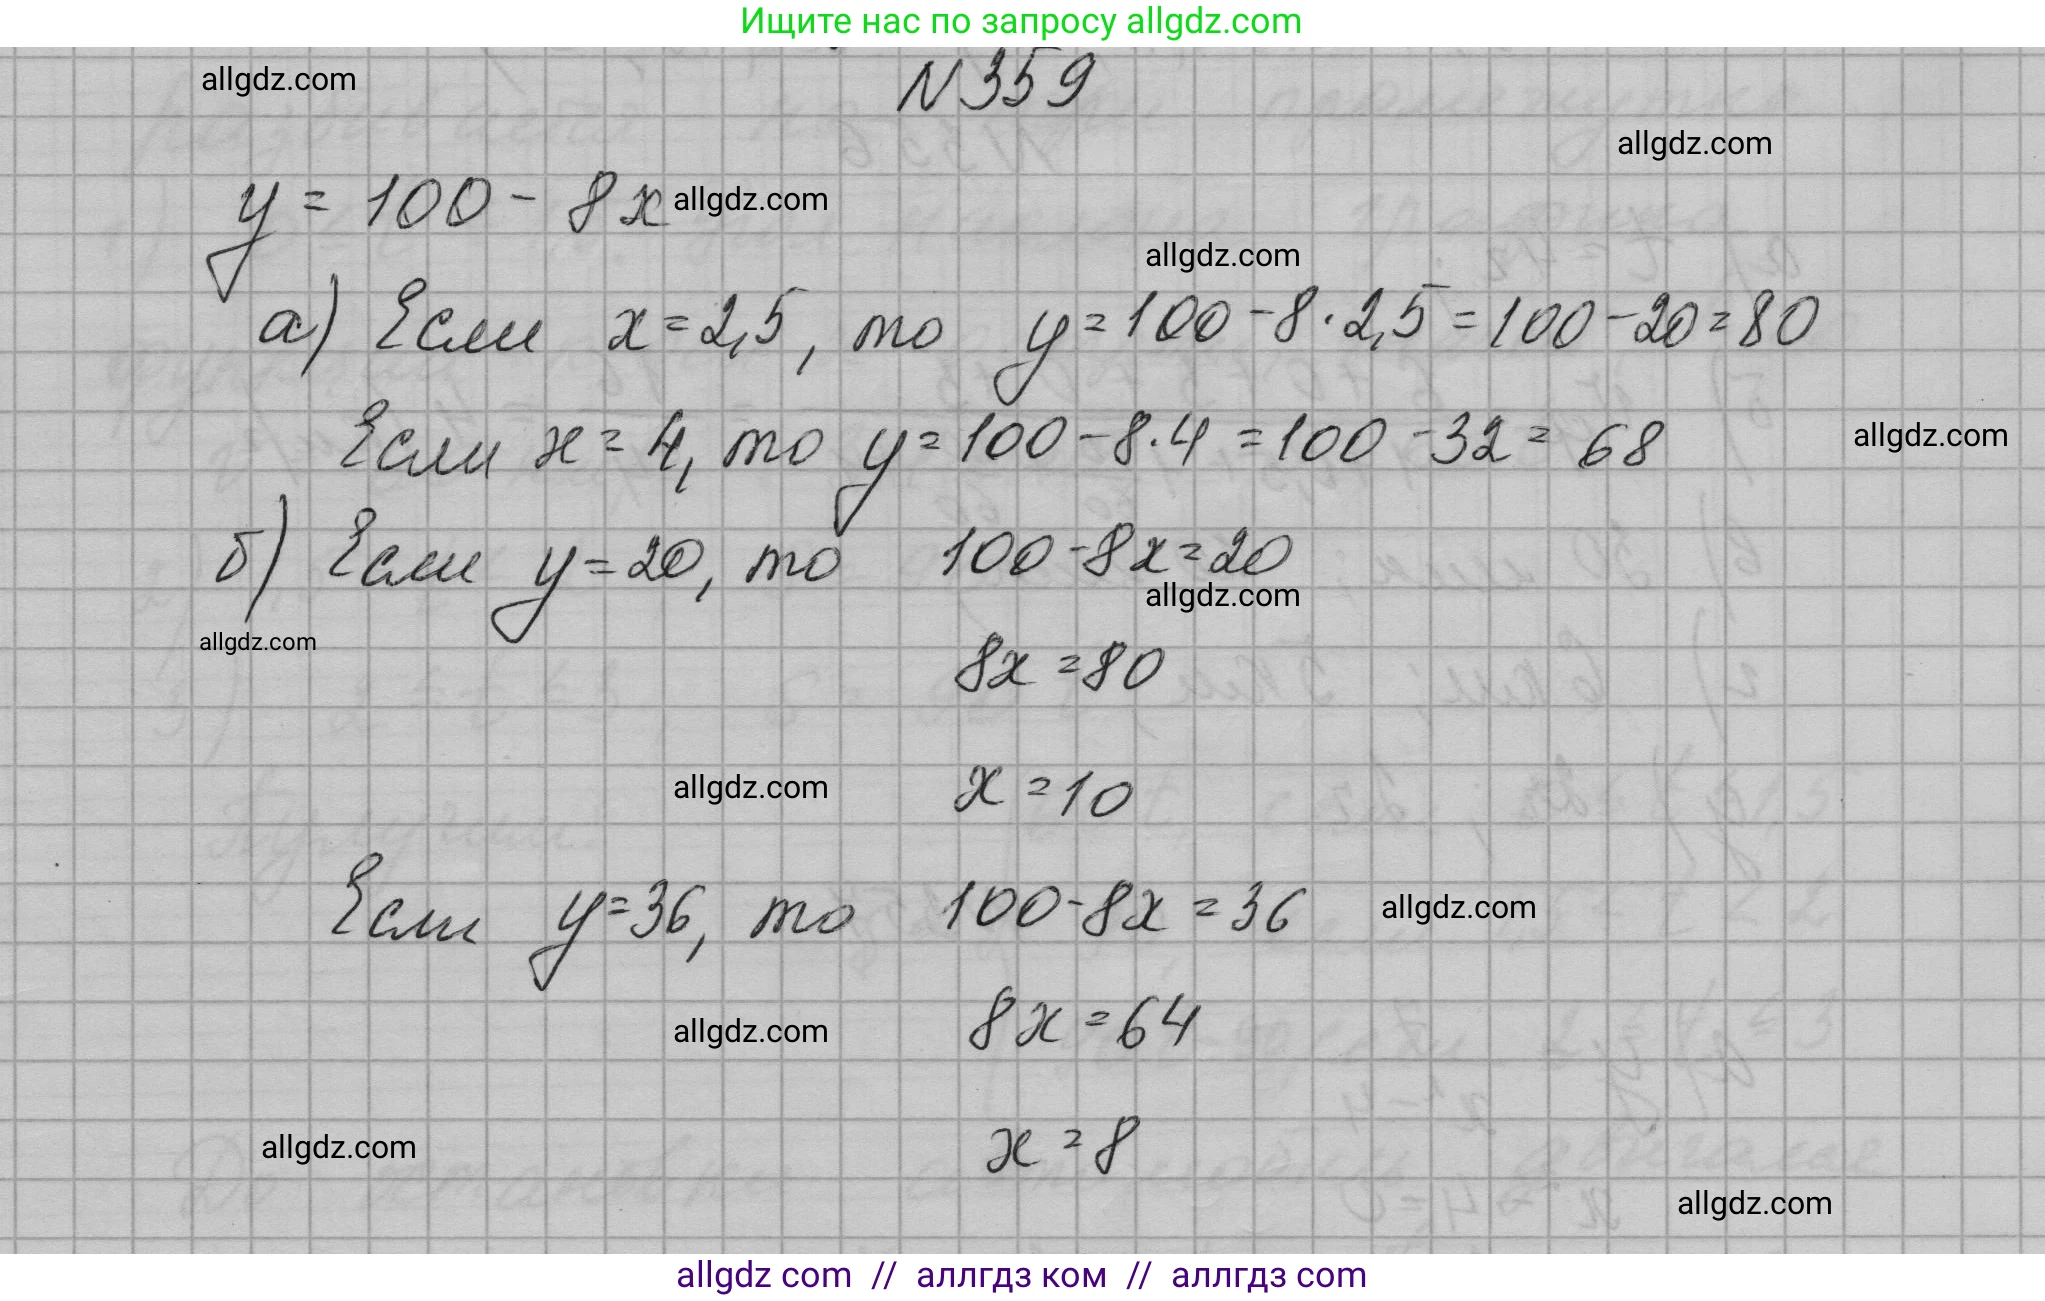 Ищите нас по запросу allgdz.com
N 359
allgdz.com
allgdz.com
y = 100 - 8x allgdz.com
allgdz.com
а) Если x = 2,5, то y = 100 - 8 · 2,5 = 100 - 20 = 80
Если x = 4, то y = 100 - 8 · 4 = 100 - 32 = 68 allgdz.com
б) Если y = 20, то 100 - 8x = 20
allgdz.com
allgdz.com
8x = 80
allgdz.com x = 10
Если y = 36, то 100 - 8x = 36 allgdz.com
allgdz.com 8x = 64
allgdz.com x = 8
allgdz.com
allgdz com // аллгдз ком // аллгдз com